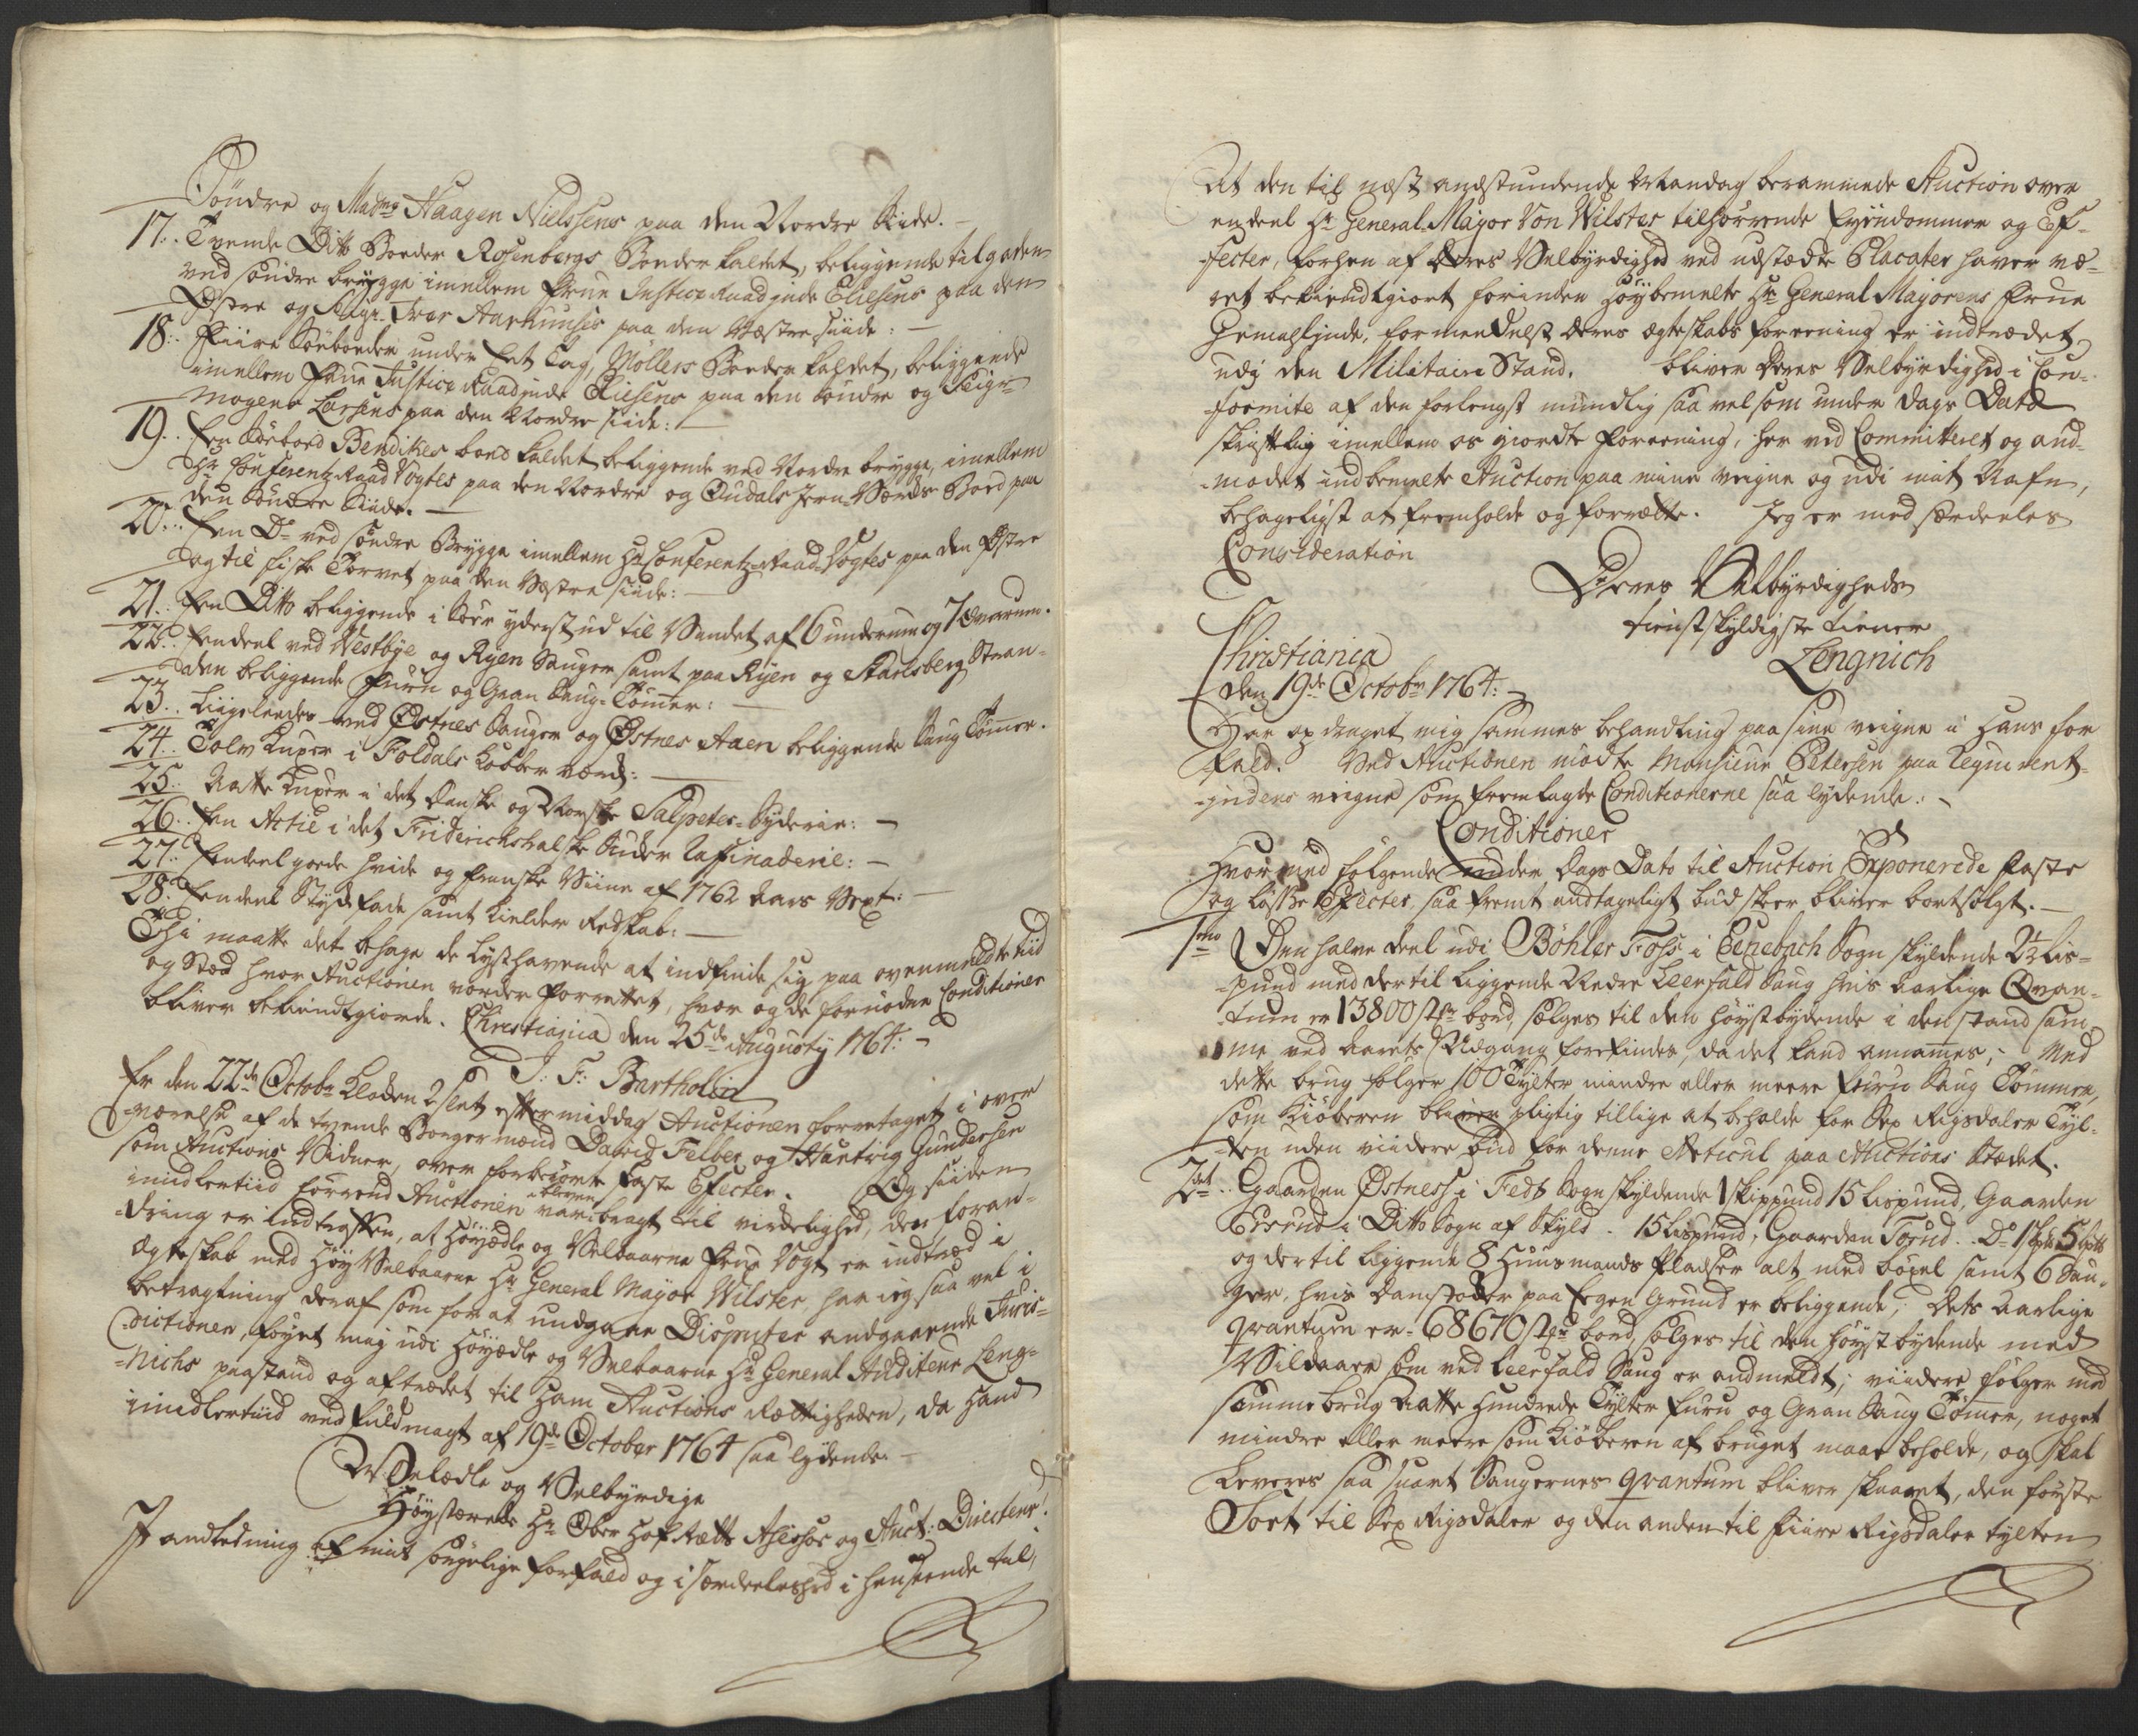 Söndre og Madme Haagen Nielsens paa den Nordre Side. –
17: Tvende Ditto Boeder Rosenbergs Boeder kaldet, beliggende tilgaden
ved söndre brygge imellem Frue Justice Raadinde Eliesens paa den
Östre og Sigr. Iver Aarhuuses paa den Væstre side: –
18: Fiire Söeboeder under Eet Tag, Möllers Boeder kaldet, beliggende
imellem Frue Justice Raadinde Eliesens paa den Söndre og Sigr
Mogens Larsens paa den Nordre side: –
19: Een Söeboed Bendikes boed kaldet beliggende ved Nordre brygge, imellem
Hr Conferentz Raad Vogtes paa den Nordre og Oudals Jern-Værcks Boed paa
den Söndre Side. –
20: Een Do ved Söndre Brygge imellem Hr Conferentz-Raad Vogtes paa den Östre
og til fiske Torvet paa den Væstre side: –
21: Een Ditto beliggende i Söer yderst ud til Vandet af 6 underrum og 7 overrum.
22: Eendeel ved Westbye og Ryen Sauger samt paa Ryen og Karlsberg Stran-
den beliggende Furu og Gran Saug-Tömer: –
23: Liigeleedes ved Östnes Sauger og Östnes Aaen beliggende Saug Tömer.
24: Tolv Kuxer i Foldals Kobber værck: –
25: Aatte Kuxer i det Danske og Norske Salpeter-Syderie: –
26: Een Actie i det Friderichshalske Suker Raffinaderie: –
27: Eendeel goede hvide og franske Viine af 1762 Aars Vext: –
28: Eendeel Stydefade samt Kielder Redskab: –
Thi maatte det behage de Lysthavende at indfinde sig paa ovenmeldte tiid
og Stæd hvor Auctionen vorder forrettet, hvor og de fornödne Conditioner
bliver bekiendtgiorde. Christiania den 25de Augusty 1764: –
J: F: Bartholin
Er den 22de Octobr Kloken 2 slet eftermiddag Auctionen foretaget i over
værelse af de tvende Borgermænd David Felber og Hartvig Gundersen
som Auctions Vidner, over forberörte Faste Effecter. Og siiden
imidlertiid förrend Auctionen var bleven bragt til virkelighed, den foran-
dring er indtroffen, at Höyædle og Velbaarne Frue Vogt er indtræd i
Ægteskab med Höy Velbaarne Hr General Major Wilster, har ieg saa vel i
betragtning deraf som for at undgaae Disputer andgaaende Juris-
dictionen, föyet mig udi Höyædle og Velbaarne Hr General Auditeur Leng-
nichs paastand og aftrædet til Ham Auctions Rettigheden, da Hand
imidlertiid ved fuldmagt af 19de October 1764 saa lydende. –
Velædle og Velbyrdige
Höystærede Hr Ober Hof Rætts Assessor og Auct: Directeur!
I andledning af mit sörgelige forfald og i særdeleshed i henseende til,
At den til næst andstundende Mandag berammede Auction over
endeel Hr General-Major Von Wilster tilhörende Eyendommer og Ef-
fecter, forhen af Deres Velbyrdighed ved udstædte Placater haver væ-
ret bekiendtgiort forinden höybemelte Hr General Majorens Frue
Gemahlinde, formedelst deres ægteskabs forening er indtrædet
udi den Militaire Stand. bliver Deres Velbyrdighed i Con-
formite af den forlengst mundlig saa vel som under Dags Dato
skriftlig imellem os giordte foreening, her ved Committeret og and-
modet indbemelte Auction paa mine veigne og udi mit Nafn,
behageligst at fremholde og forrætte. Jeg er med særdeeles
Consideration
Deres Velbyrdigheds
tienstskyldigste tiener
Lengnich
Christiania
den 19de Octobr 1764: –
Har opdraget mig sammes behandling paa sine veigne i Hans for
fald. Ved Auctionen mödte Monsieur Petersen paa Requirent-
indens veigne som fremlagde Conditionerne saa lydende: –
Conditioner
Hvor ved fölgende under Dags Dato til Auction Exponerede faste
og Lösse Effecter, saa fremt andtageligt bud skeer bliver bortsolgt. –
1mo Den halve deel udi Böhler Foss i Eenebach Sogn skyldende 2½ Lis-
pund med der til liggende Nedre Leerfald Saug hvis Aarlige Qvan-
tum er 13800 ster bord, sælges til den höystbydende i den stand sam-
me ved Aarets Udgang forefindes, da det kand annammes; Med
dette brug fölger 100 Tylter mindre eller meere Furu Saug Tömmer,
som Kiöberen bliver pligtig tillige at beholde for Sex Rigsdaler Tyl-
ten uden viidere bud for denne Articul paa Auctions Stædet.
2det Gaarden Östness i Fedt Sogn skyldende 1 skippund 15 Lispund, Gaarden
i Ditto Sogn af Skyld. 15 Lispund, Gaarden Do
og der til liggende 8 Huusmands pladser alt med böxel samt 6 Sau-
ger, hvis Damstoder paa Eegen Grund er beliggende; dets Aarlige
qvantum er 68670 ster bord, sælges til den höystbydende med
Vilkaar som ved Leerfald Saug er andmeldt; viidere fölger med
samme brug Aatte Hundrede Tylter Furu og Gran Saug Tömer, noget
mindre eller meere som Kiöberen af bruget maae beholde, og skal
Leveres saa snart Saugernes qvantum bliver skaaret, den förste
Sort til Sex Rigsdaler og den anden til fiire Rigsdaler tylten